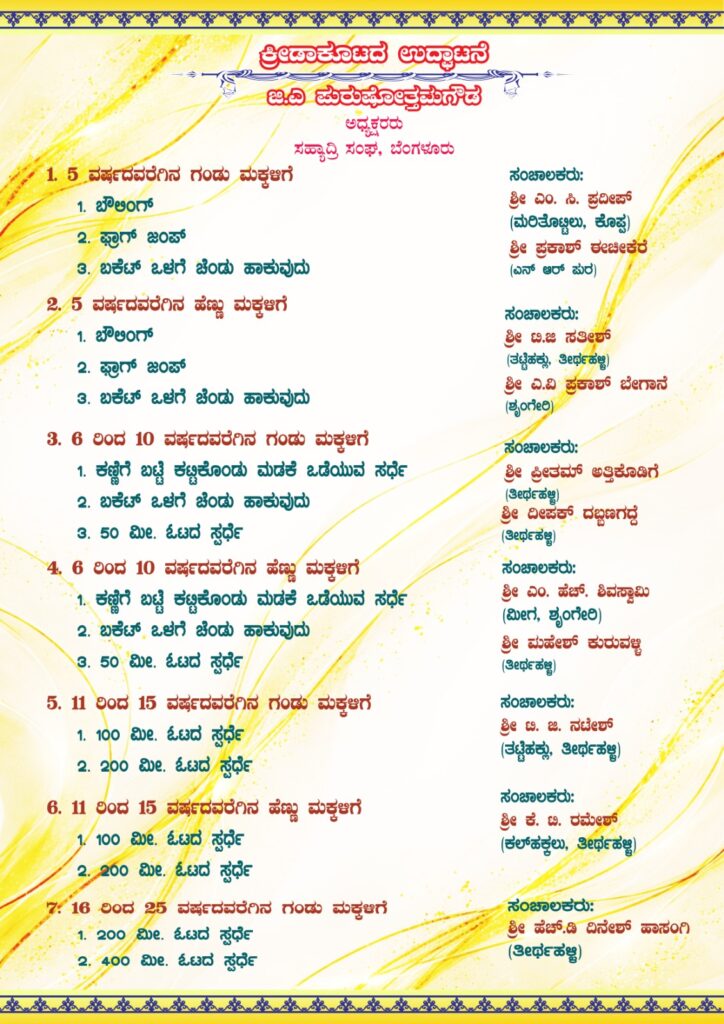 ಕ್ರೀಡಾಕೂಟದ ಉದ್ಘಾಟನೆ
ಜಿ.ಎ ಪುರುಷೋತ್ತಮಗೌಡ
ಅಧ್ಯಕ್ಷರರು
ಸಹ್ಯಾದ್ರಿ ಸಂಘ, ಬೆಂಗಳೂರು
1. 5 ವರ್ಷದವರೆಗಿನ ಗಂಡು ಮಕ್ಕಳಿಗೆ
1. ಬೌಲಿಂಗ್
2. ಫ್ರಾಗ್ ಜಂಪ್
3. ಬಕೆಟ್ ಒಳಗೆ ಚೆಂಡು ಹಾಕುವುದು
ಸಂಚಾಲಕರು:
ಶ್ರೀ ಎಂ. ಸಿ. ಪ್ರದೀಪ್
(ಮರಿತೊಟ್ಟಲು, ಕೊಪ್ಪ)
ಶ್ರೀ ಪ್ರಕಾಶ್ ಈಚೀಕೆರೆ
(ಎನ್ ಆರ್ ಪುರ)
2. 5 ವರ್ಷದವರೆಗಿನ ಹೆಣ್ಣು ಮಕ್ಕಳಿಗೆ
1. ಬೌಲಿಂಗ್
2. ಫ್ರಾಗ್ ಜಂಪ್
3. ಬಕೆಟ್ ಒಳಗೆ ಚೆಂಡು ಹಾಕುವುದು
ಸಂಚಾಲಕರು:
ಶ್ರೀ ಟಿ.ಜಿ ಸತೀಶ್
(ತಟ್ಟೆಹಕ್ಲು, ತೀರ್ಥಹಳ್ಳಿ)
ಶ್ರೀ ಎ.ವಿ ಪ್ರಕಾಶ್ ಬೇಗಾನೆ
(ಶೃಂಗೇರಿ)
3. 6 ರಿಂದ 10 ವರ್ಷದವರೆಗಿನ ಗಂಡು ಮಕ್ಕಳಿಗೆ
1. ಕಣ್ಣಿಗೆ ಬಟ್ಟೆ ಕಟ್ಟಕೊಂಡು ಮಡಕೆ ಒಡೆಯುವ ಸರ್ಧೆ
2. ಬಕೆಟ್ ಒಳಗೆ ಚೆಂಡು ಹಾಕುವುದು
3. 50 ಮೀ. ಓಟದ ಸ್ಪರ್ಧೆ
ಸಂಚಾಲಕರು:
ಶ್ರೀ ಪ್ರೀತಮ್ ಅತ್ತಿಕೊಡಿಗೆ
(ತೀರ್ಥಹಳ್ಳಿ)
ಶ್ರೀ ದೀಪಕ್ ದಬ್ಬಣಗದ್ದೆ
(ತೀರ್ಥಹಳ್ಳಿ)
4. 6 ರಿಂದ 10 ವರ್ಷದವರೆಗಿನ ಹೆಣ್ಣು ಮಕ್ಕಳಿಗೆ
1. ಕಣ್ಣಿಗೆ ಬಟ್ಟೆ ಕಟ್ಟಕೊಂಡು ಮಡಕೆ ಒಡೆಯುವ ಸರ್ಧೆ
2. ಬಕೆಟ್ ಒಳಗೆ ಚೆಂಡು ಹಾಕುವುದು
3. 50 ಮೀ. ಓಟದ ಸ್ಪರ್ಧೆ
ಸಂಚಾಲಕರು:
ಶ್ರೀ ಎಂ. ಹೆಚ್. ಶಿವಸ್ವಾಮಿ
(ಮೀಗ, ಶೃಂಗೇರಿ)
ಶ್ರೀ ಮಹೇಶ್ ಕುರುವಳ್ಳಿ
(ತೀರ್ಥಹಳ್ಳಿ)
5. 11 ರಿಂದ 15 ವರ್ಷದವರೆಗಿನ ಗಂಡು ಮಕ್ಕಳಿಗೆ
1. 100 ಮೀ. ಓಟದ ಸ್ಪರ್ಧೆ
2. 200 ಮೀ. ಓಟದ ಸ್ಪರ್ಧೆ
ಸಂಚಾಲಕರು:
ಶ್ರೀ ಟಿ. ಜಿ. ನಟೇಶ್
(ತಟ್ಟೆಹಕ್ಲು, ತೀರ್ಥಹಳ್ಳಿ)
6. 11 ರಿಂದ 15 ವರ್ಷದವರೆಗಿನ ಹೆಣ್ಣು ಮಕ್ಕಳಿಗೆ
1. 100 ಮೀ. ಓಟದ ಸ್ಪರ್ಧೆ
2. 200 ಮೀ. ಓಟದ ಸ್ಪರ್ಧೆ
ಸಂಚಾಲಕರು:
ಶ್ರೀ ಕೆ. ಟಿ. ರಮೇಶ್
(ಕಲ್‌ಹಕ್ಕಲು, ತೀರ್ಥಹಳ್ಳಿ)
7. 16 ರಿಂದ 25 ವರ್ಷದವರೆಗಿನ ಗಂಡು ಮಕ್ಕಳಿಗೆ
1. 200 ಮೀ. ಓಟದ ಸ್ಪರ್ಧೆ
2. 400 ಮೀ. ಓಟದ ಸ್ಪರ್ಧೆ
ಸಂಚಾಲಕರು:
ಶ್ರೀ ಹೆಚ್.ಡಿ ದಿನೇಶ್ ಹಾಸಂಗಿ
(ತೀರ್ಥಹಳ್ಳಿ)